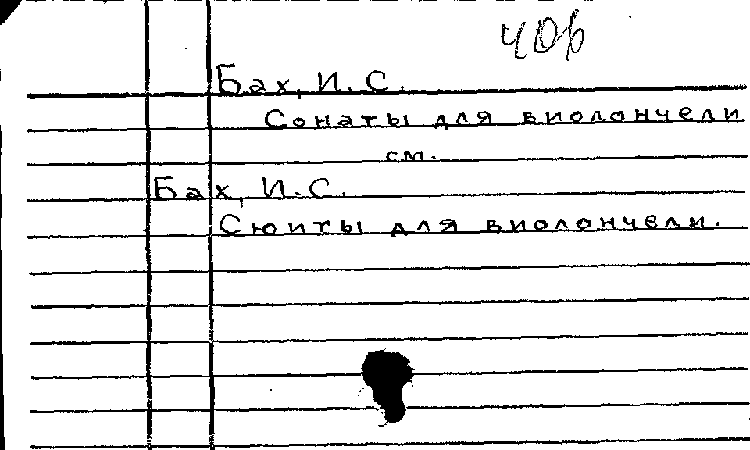 406
Бах, И. С.
Сонаты для виолончели
см.
Бах, И. С.
Сюиты для виолончели.